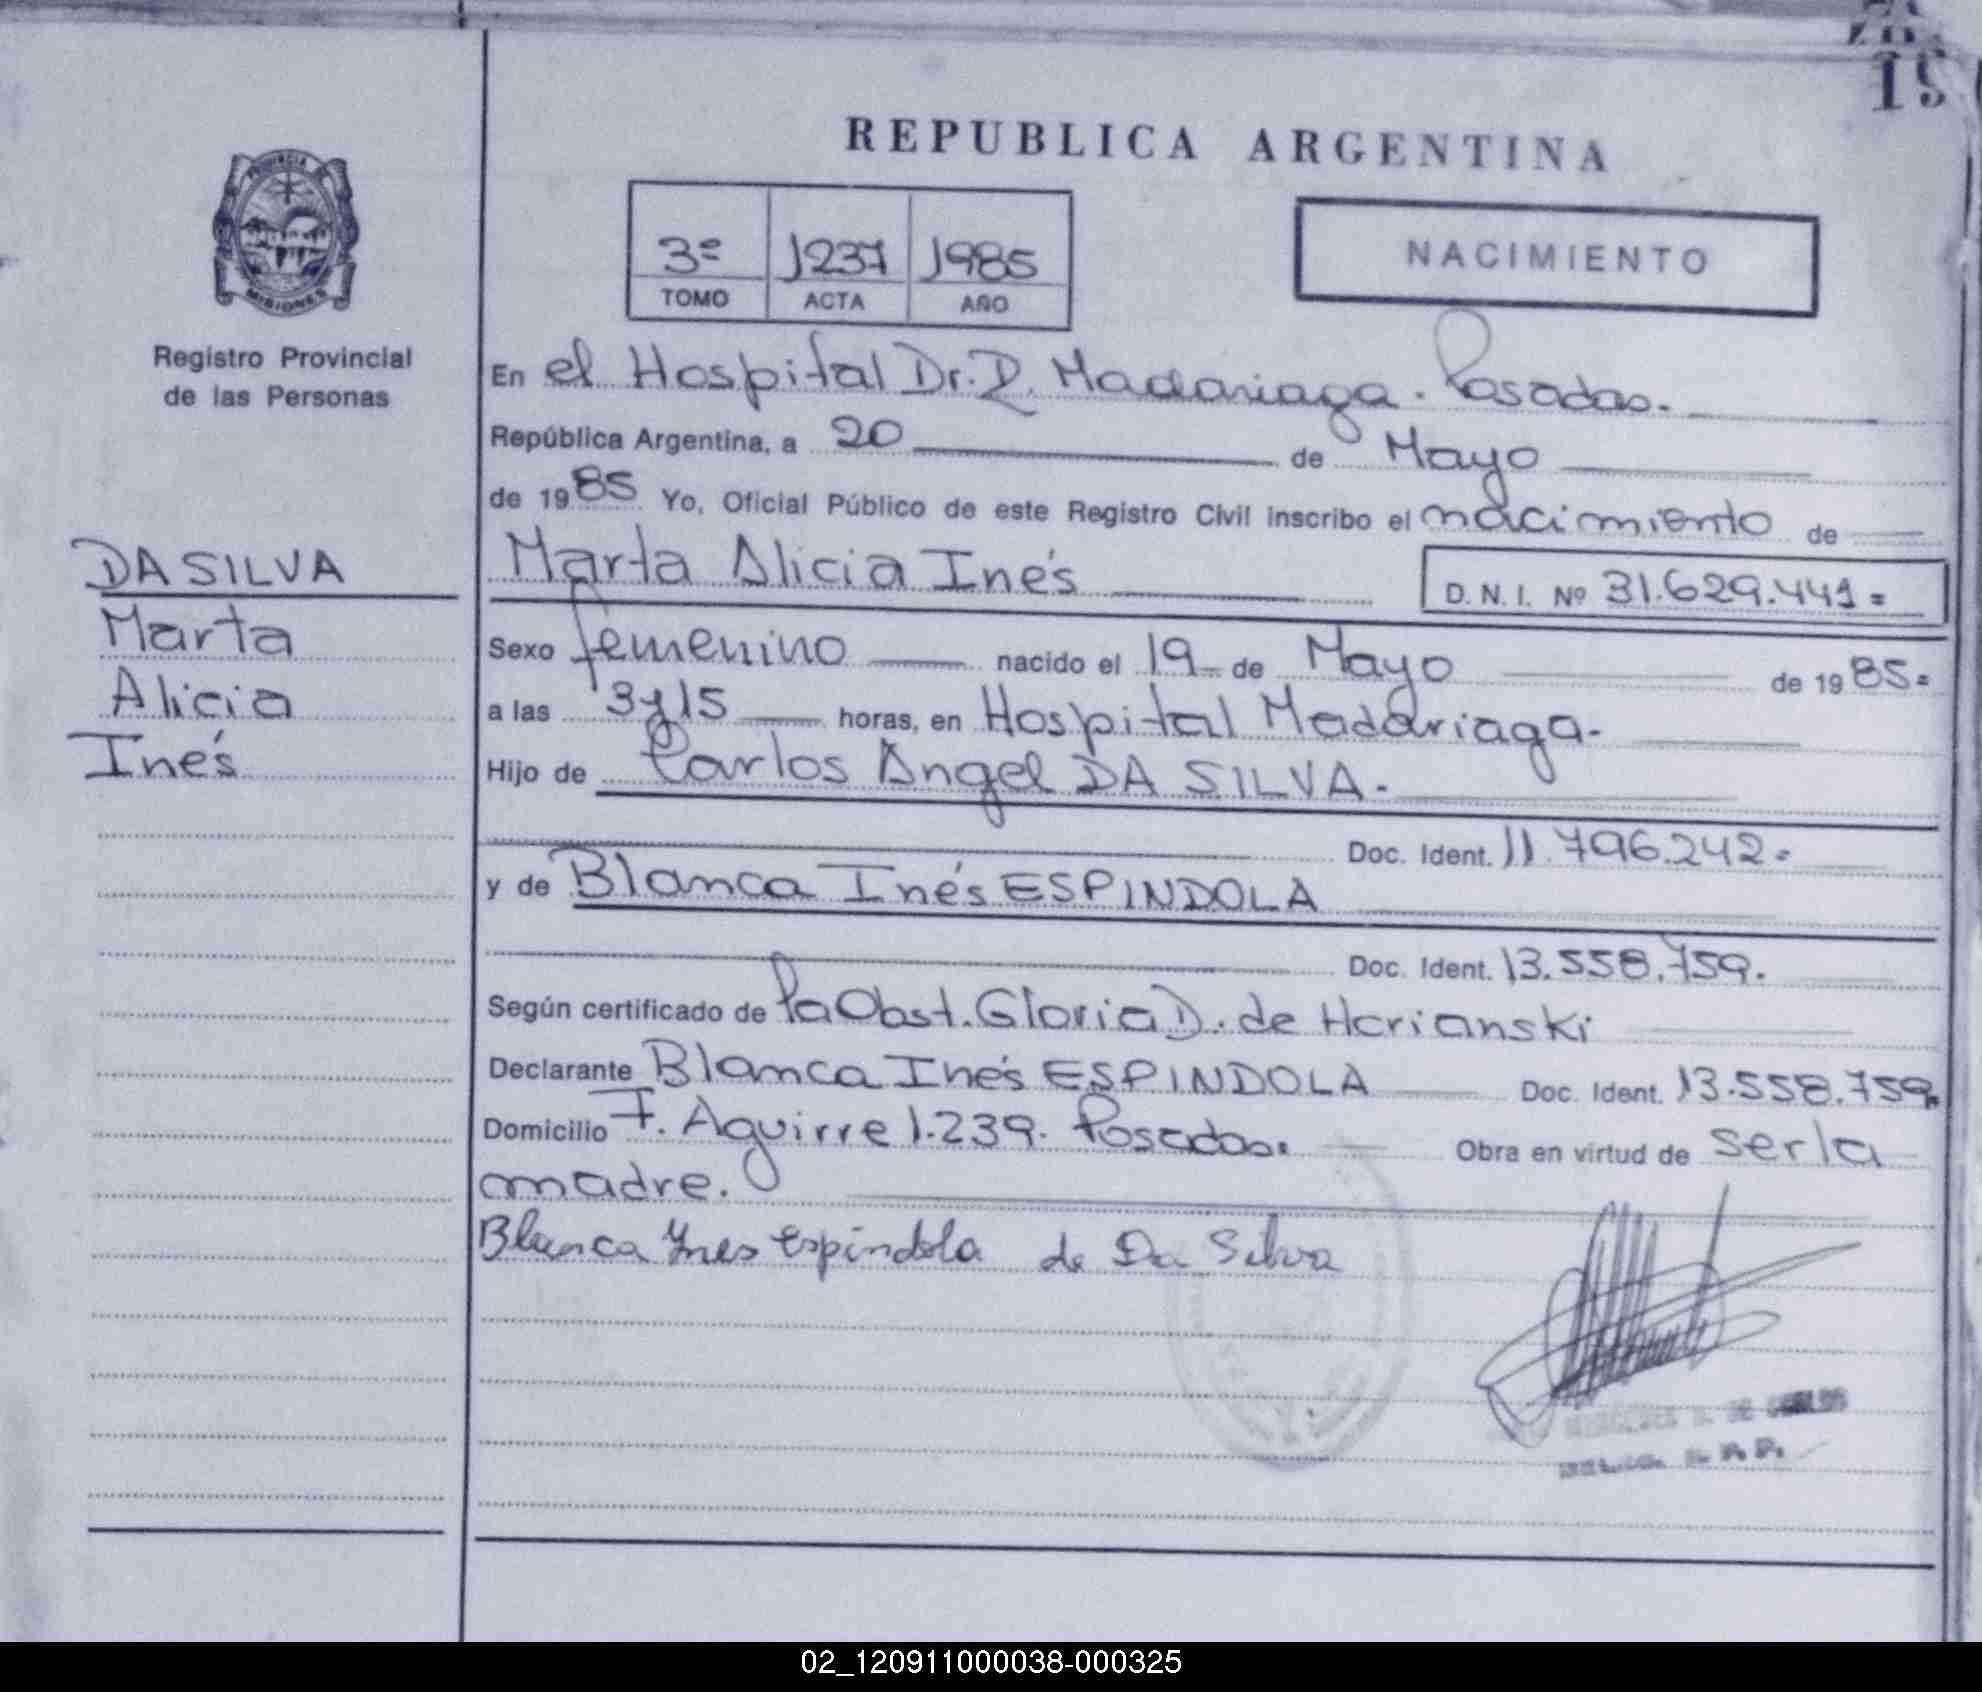 19
REPUBLICA ARGENTINA
PROVINCIA
MISIONES
Registro Provincial
de las Personas
3º 1237 1985
TOMO ACTA AÑO
NACIMIENTO
En el Hospital Dr. R. Madariaga. Posadas.
República Argentina, a 20 de Mayo
de 1985 Yo, Oficial Público de este Registro Civil inscribo el nacimiento de
DA SILVA
Marta
Alicia
Inés
Marta Alicia Inés D.N.I. Nº 31.629.441=
Sexo femenino nacido el 19 de Mayo de 1985=
a las 3y15 horas, en Hospital Madariaga.
Hijo de Carlos Angel DA SILVA.
Doc. Ident. 11.796.242=
y de Blanca Inés ESPINDOLA
Doc. Ident. 13.558.759.
Según certificado de la Obst. Gloria D. de Horianski
Declarante Blanca Inés ESPINDOLA Doc. Ident. 13.558.759.
Domicilio F. Aguirre 1.239. Posadas. Obra en virtud de ser la
madre.
Blanca Ynes Espíndola de Da Silva
02_120911000038-000325